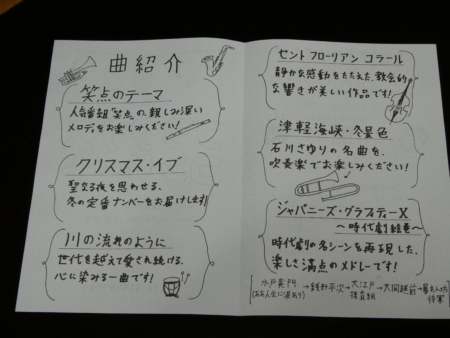 曲紹介
笑点のテーマ
人気番組「笑点」の、親しみ深い
メロディをお楽しみください!
クリスマス・イブ
聖なる夜を思わせる、
冬の定番ナンバーをお届けします!
川の流れのように
世代を越えて愛され続ける、
心に染みる一曲です!
セント フローリアン コラール
静かな感動をたたえた、教会的
な響きが美しい作品です!
津軽海峡・冬景色
石川さゆりの名曲を、
吹奏楽でお楽しみください!
ジャパニーズ・グラフィティーX
〜時代劇絵巻〜
時代劇の名シーンを再現した、
楽しさ満点のメドレーです!
水戸黄門
(ああ人生に涙あり)
→銭形平次→
大江戸
捜査網
→大岡越前→
暴れん坊
将軍